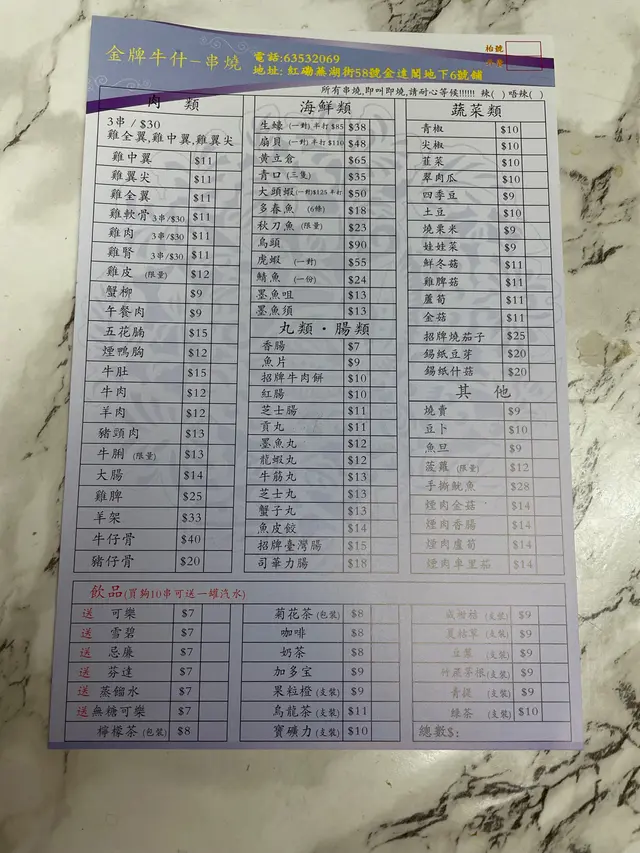 金牌牛什-串燒
電話:63532069
地址: 紅磡蕪湖街58號金達閣地下6號舖
枱號
所有串燒,即叫即燒,請耐心等候!!!!!! 辣( ) 唔辣( )
肉 類
3串 / $30
雞全翼,雞中翼,雞翼尖
雞中翼 $11
雞翼尖 $11
雞全翼 $11
雞軟骨 3串/$30 $11
雞肉 3串/$30 $11
雞腎 3串/$30 $11
雞皮 (限量) $12
蟹柳 $9
午餐肉 $9
五花腩 $15
煙鴨胸 $12
牛肚 $15
牛肉 $12
羊肉 $12
豬頸肉 $13
牛脷 (限量) $13
大腸 $14
雞脾 $25
羊架 $33
牛仔骨 $40
豬仔骨 $20
海鮮類
生蠔 (一對) 半打 $85 $38
扇貝 (一對) 半打 $110 $48
黃立倉 $65
青口 (三隻) $35
大頭蝦 (一對)$125 半打 $50
多春魚 (6條) $18
秋刀魚 (限量) $23
烏頭 $90
虎蝦 (一對) $55
鯖魚 (一份) $24
墨魚咀 $13
墨魚須 $13
丸類 · 腸類
香腸 $7
魚片 $9
招牌牛肉餅 $10
紅腸 $10
芝士腸 $11
貢丸 $11
墨魚丸 $12
龍蝦丸 $12
牛筋丸 $13
芝士丸 $13
蟹子丸 $13
魚皮餃 $14
招牌臺灣腸 $15
司華力腸 $18
蔬菜類
青椒 $10
尖椒 $10
韮菜 $10
翠肉瓜 $10
四季豆 $9
土豆 $10
燒粟米 $9
娃娃菜 $9
鮮冬菇 $11
雞脾菇 $11
蘆筍 $11
金菇 $11
招牌燒茄子 $25
錫紙豆芽 $20
錫紙什菇 $20
其 他
燒賣 $9
豆卜 $10
魚旦 $9
菠蘿 (限量) $12
手撕魷魚 $28
煙肉金菇 $14
煙肉香腸 $14
煙肉蘆筍 $14
煙肉車里茄 $14
飲品(買夠10串可送一罐汽水)
送 可樂 $7
送 雪碧 $7
送 忌廉 $7
送 芬達 $7
送 蒸餾水 $7
送 無糖可樂 $7
檸檬茶 (包裝) $8
菊花茶 (包裝) $8
咖啡 $8
奶茶 $8
加多寶 $9
果粒橙 (支裝) $9
烏龍茶 (支裝) $11
寶礦力 (支裝) $10
咸柑桔 (支裝) $9
夏枯草 (支裝) $9
豆漿 (支裝) $9
竹蔗茅根 (支裝) $9
青提 (支裝) $9
綠茶 (支裝) $10
總數$: